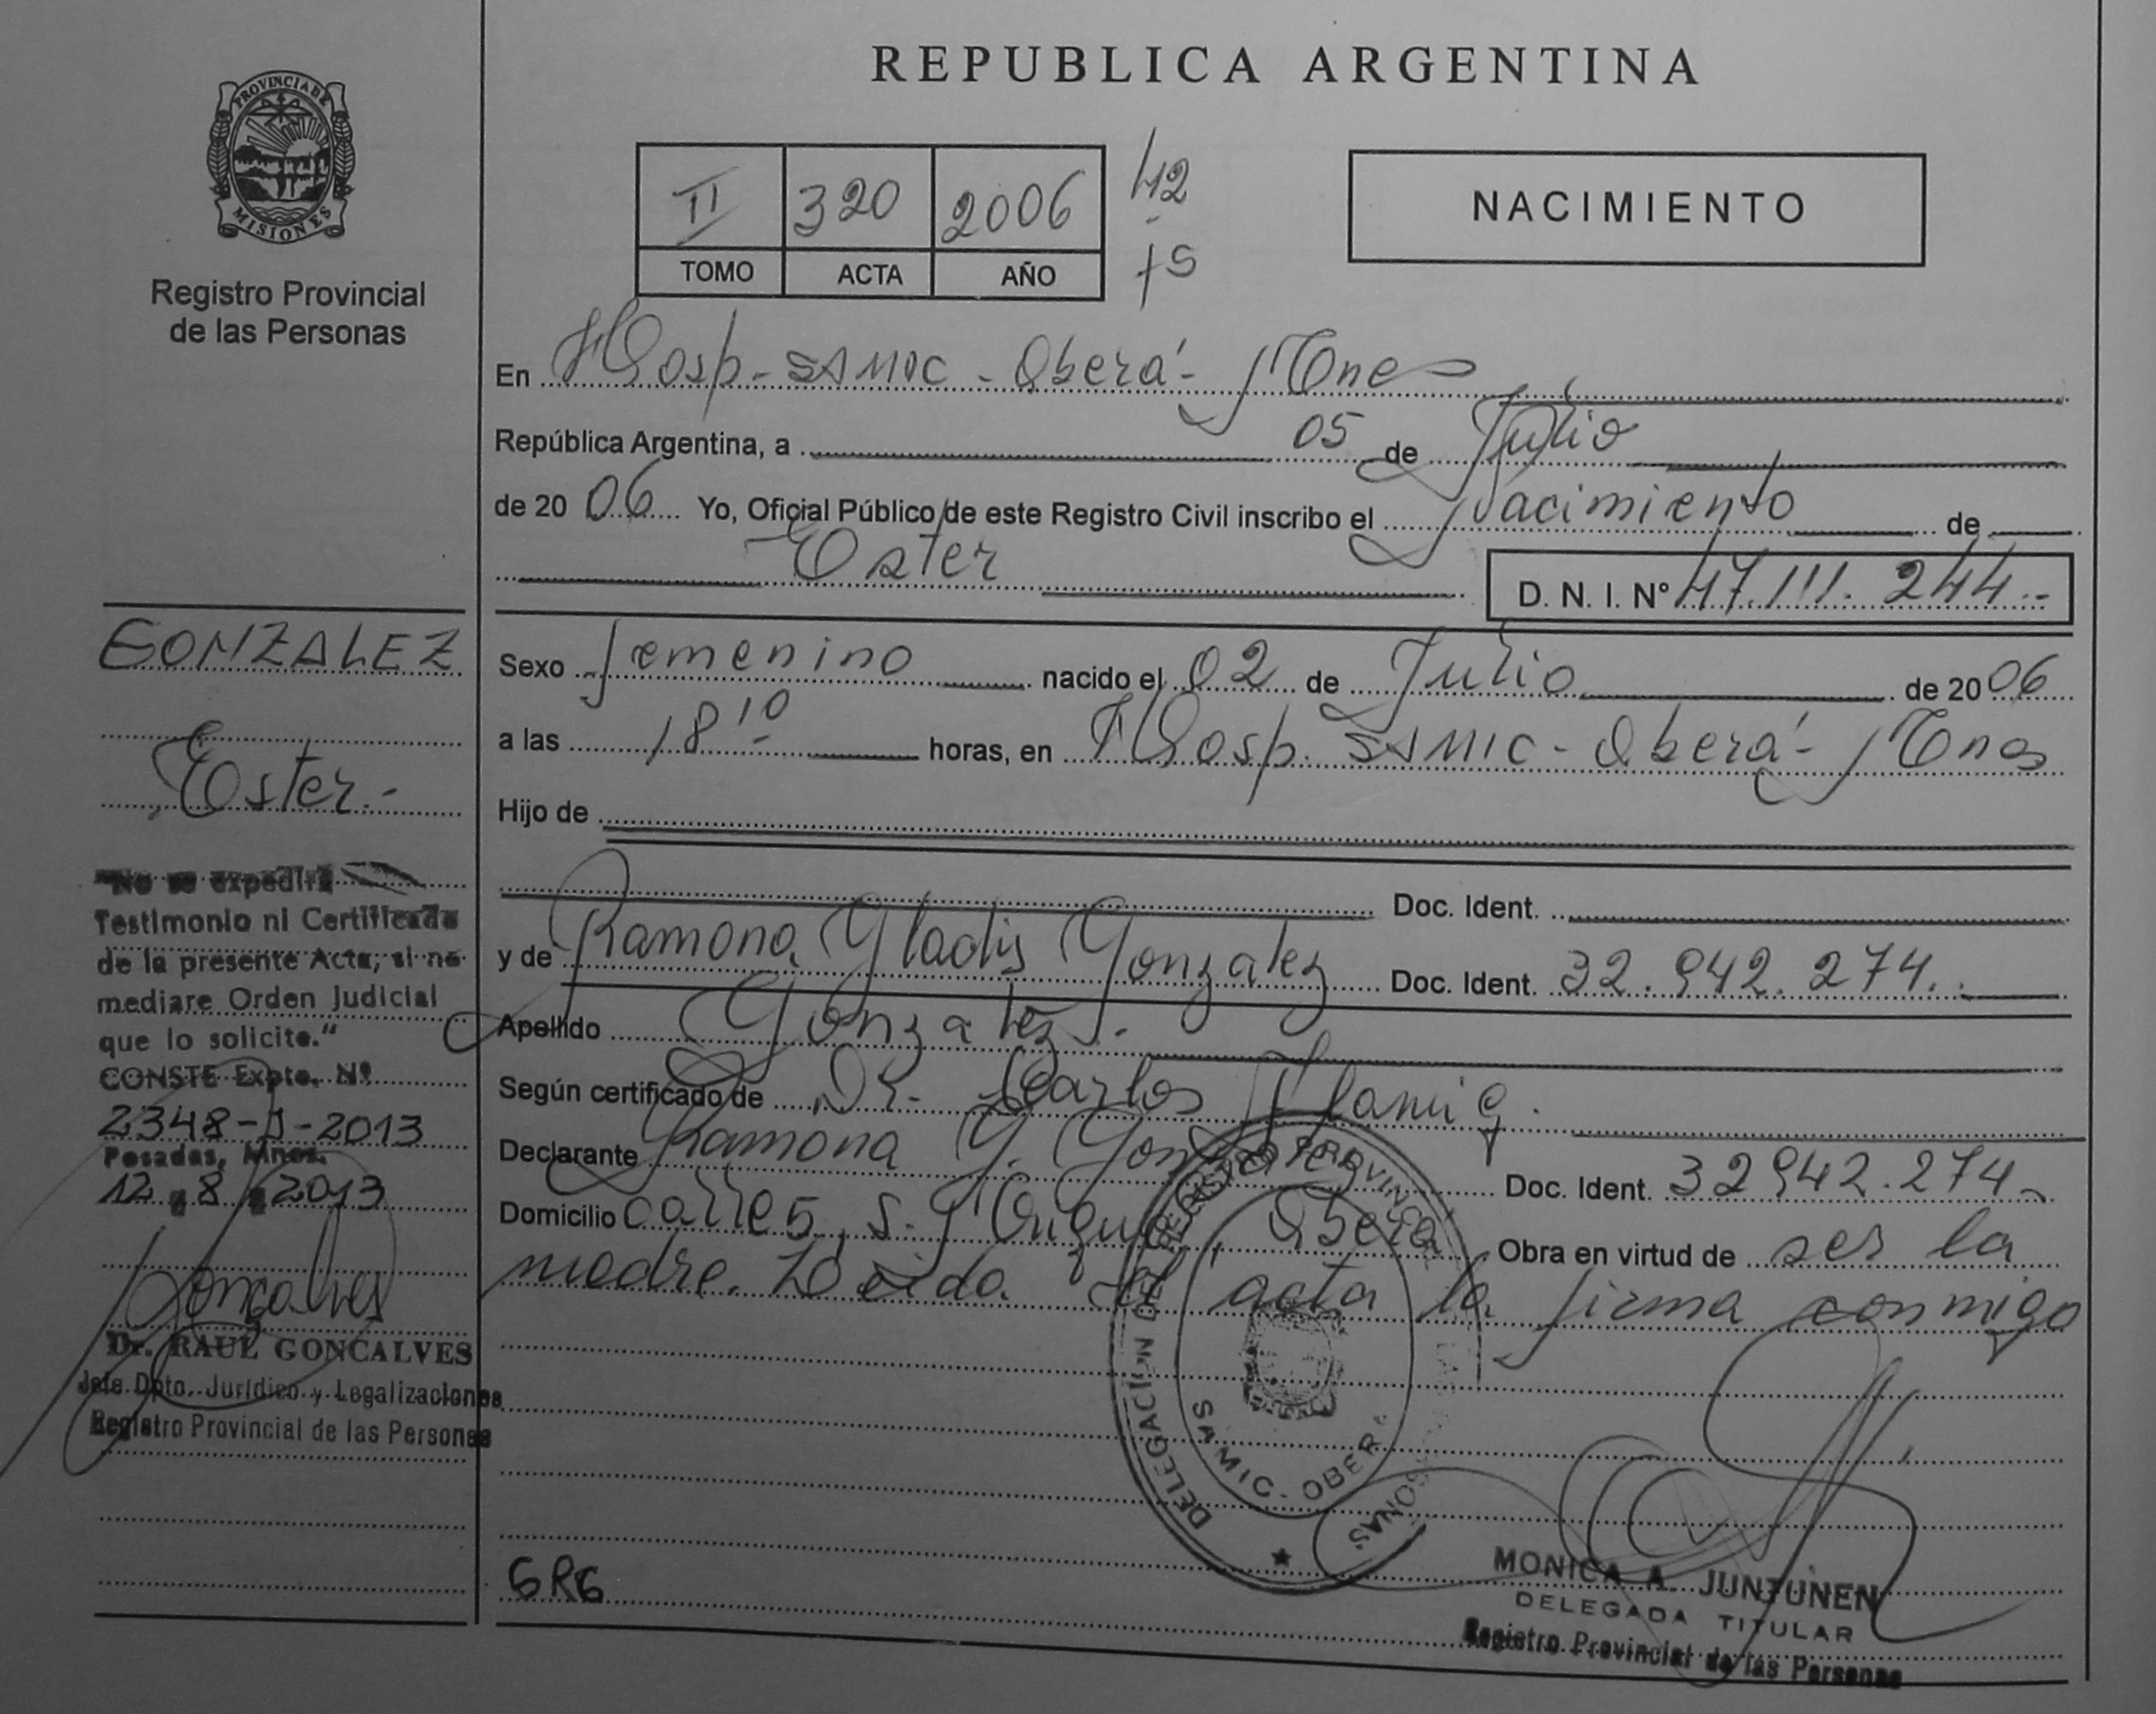 REPUBLICA ARGENTINA
PROVINCIA DE
MISIONES
Registro Provincial
de las Personas
II 320 2006
TOMO ACTA AÑO
42
NACIMIENTO
En Hosp-SAMIC-Oberá-Mnes
República Argentina, a 05 de Julio
de 2006 Yo, Oficial Público de este Registro Civil inscribo el Nacimiento de
Ester
D. N. I. Nº 47.111.244.-
GONZALEZ
Ester.-
Sexo femenino nacido el 02 de Julio de 2006
a las 18 10 horas, en Hosp. SAMIC-Oberá-Mnes
Hijo de
Doc. Ident.
y de Ramona Gladis Gonzalez Doc. Ident. 32.942.274.-
Apellido Gonzalez.
Según certificado de Dr. Carlos
Declarante Ramona G. Gonzalez Doc. Ident. 32942.274-
Domicilio calle 5, S. Miguel, Oberá Obra en virtud de ser la
madre. Leída el acta la firma conmigo
"No se expedirá
Testimonio ni Certificado
de la presente Acta, si no
mediare Orden Judicial
que lo solicite."
CONSTE Expte. Nº
2348-J-2013
Posadas, Mnes.
12.8.2013
Goncalves
Dr. RAUL GONCALVES
Jefe Dpto. Jurídico y Legalizaciones
Registro Provincial de las Personas
DELEGACIÓN DEL REGISTRO PROVINCIAL
PERSONAS
SAMIC - OBERA
GRG
MONICA A. JUNTUNEN
DELEGADA TITULAR
Registro Provincial de las Personas